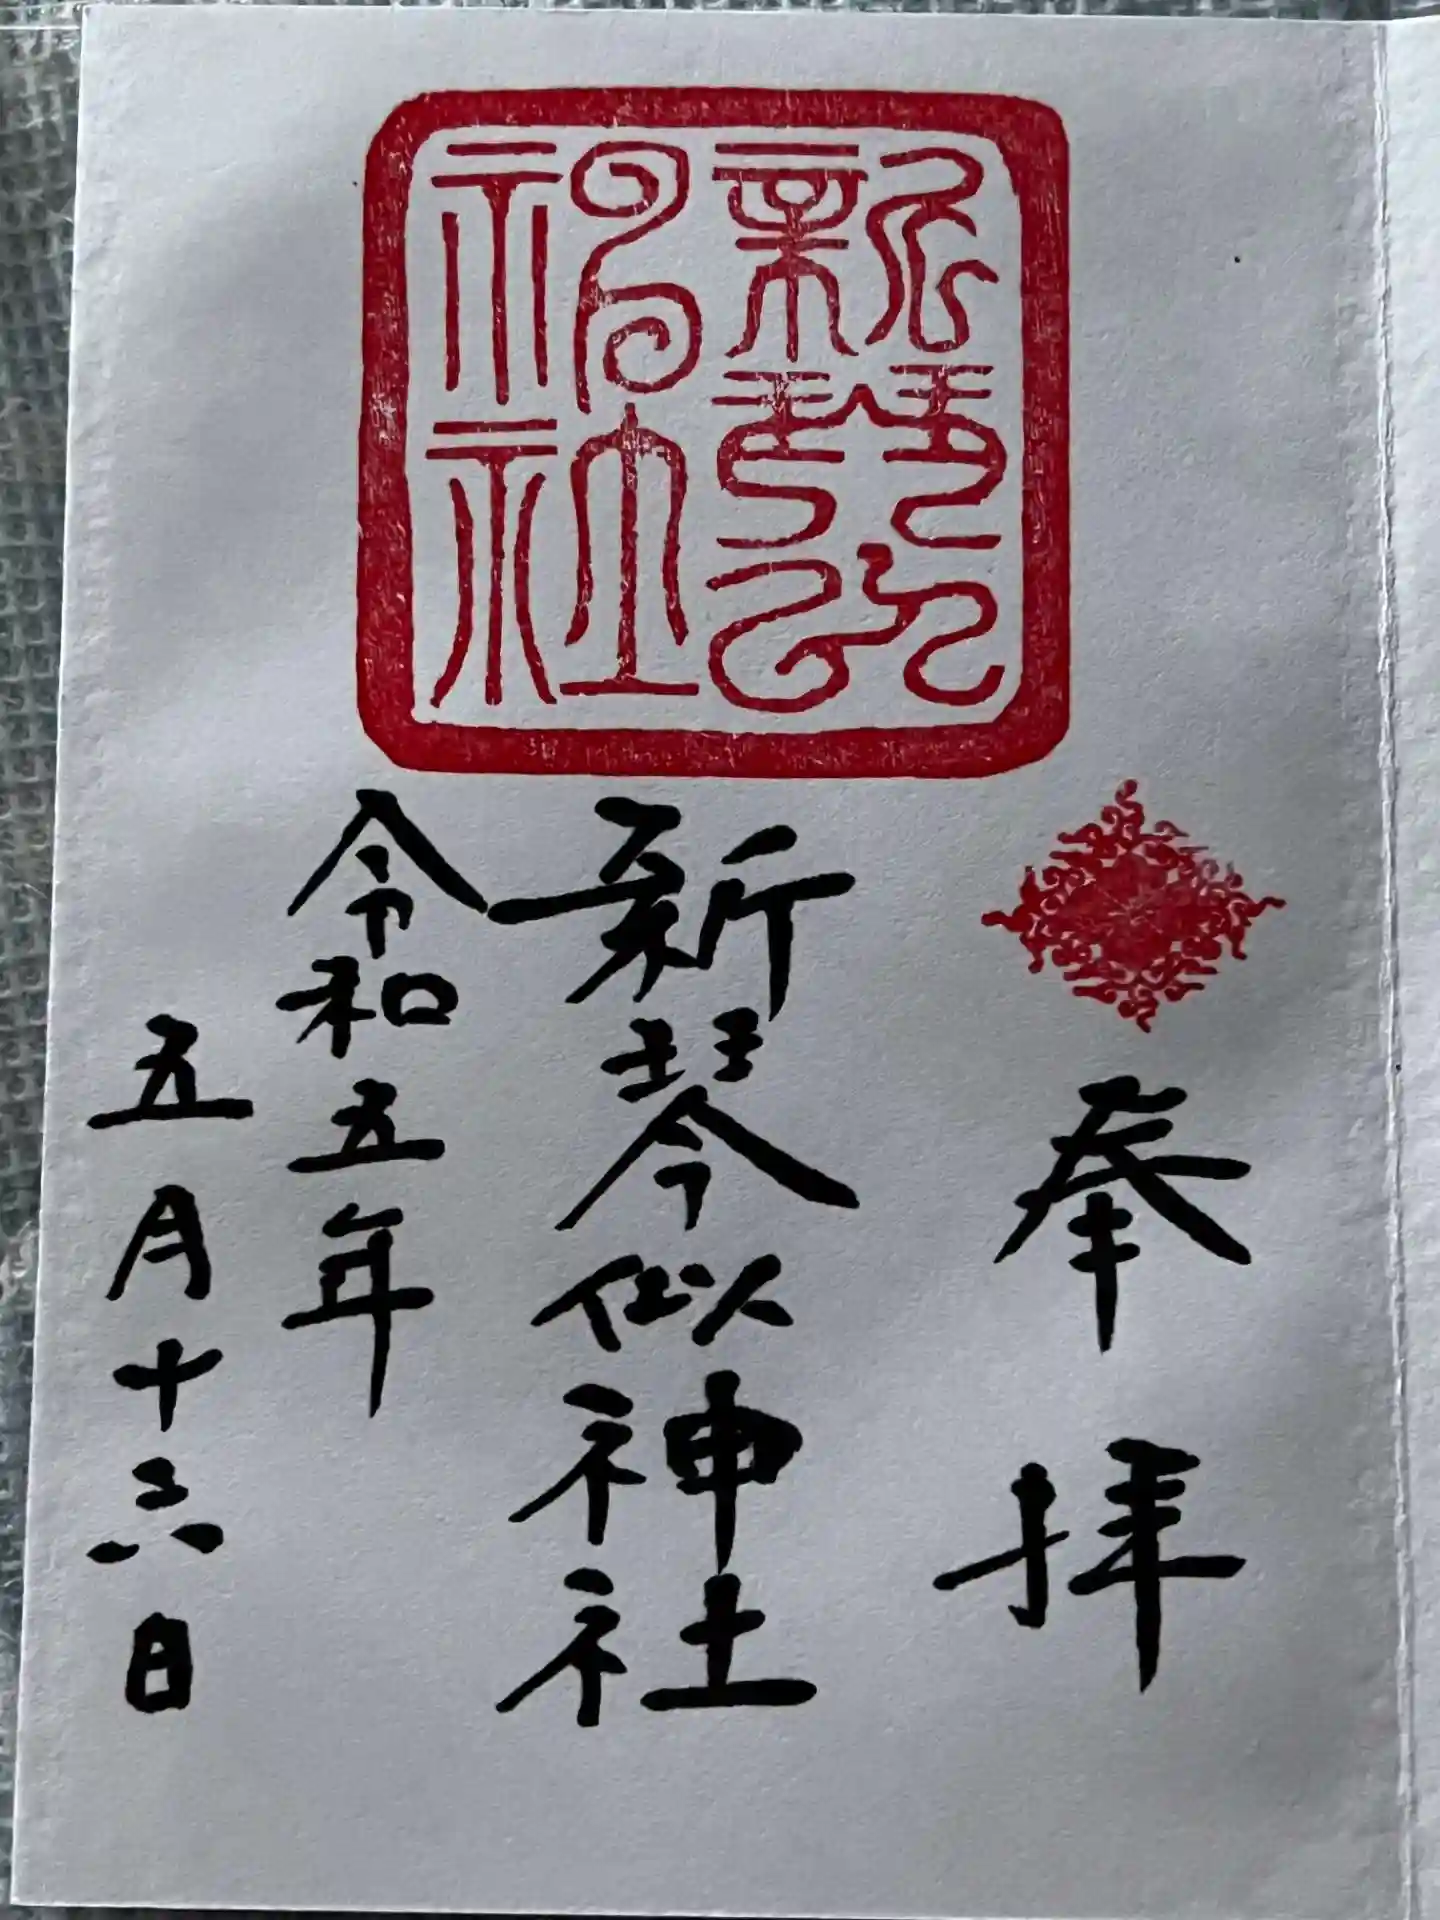 新琴似
神社
奉拝
新琴似神社
令和五年
五月十六日